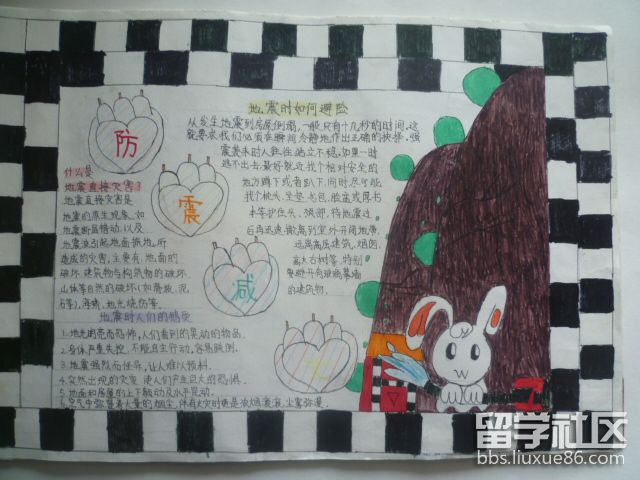 防
震
减
地震时如何避险
从发生地震到房屋倒塌,一般只有十几秒的时间,这
就要求我们必须在瞬间冷静地作出正确的抉择,强
震袭来时人往往站立不稳,如果一时
逃不出去,最好就近找个相对安全的
地方蹲下或者趴下,同时尽可能
找个枕头、坐垫、书包、脸盆或厚书
本等护住头、颈部,待地震过
后再迅速撤离到室外开阔地带,
远离高层建筑、烟囱、
高大古树等,特别
要避开有玻璃幕墙
的建筑物.
什么是
地震直接灾害?
地震直接灾害是
地震的原生现象,如
地震断层错动,以及
地震波引起地面振动,所
造成的灾害,主要有:地面的
破坏,建筑物与构筑物的破坏,
山体等自然的破坏(如滑坡、泥
石等),海啸、地光烧伤等.
地震时人们的感受
1.地光闪亮而恐怖,人们看到的晃动的物品.
2.身体严重失控,不能自主行动,容易跌倒.
3.地震强烈而怪异,让人难以预料.
4.突然出现的灾变,使人们产生巨大的恐惧.
5.地面和房屋的上下颠动及水平晃动.
6.空气中弥漫着大量的烟尘,伴有火灾时更是浓烟滚滚,尘雾弥漫.
留学社区
bbs.liuxue86.com